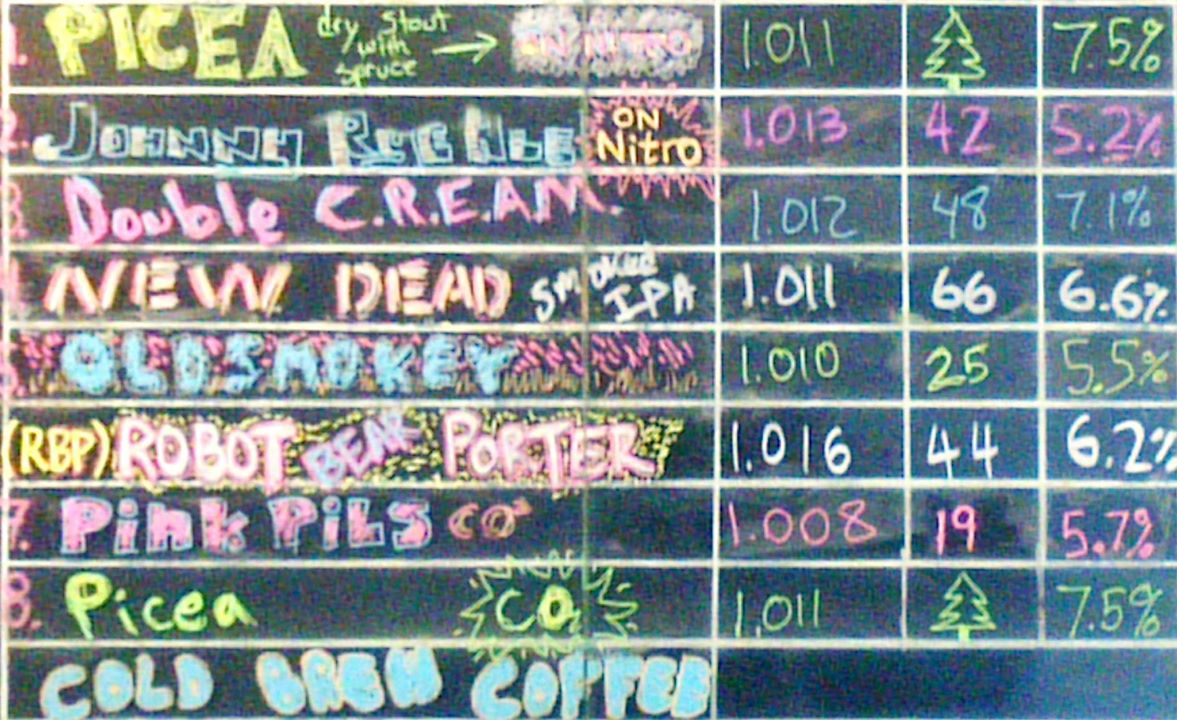 1. PICEA dry stout with spruce → ON NITRO 1.011 7.5%
2. JOHNNY RYE ALE ON Nitro 1.013 42 5.2%
3. Double C.R.E.A.M. 1.012 48 7.1%
NEW DEAD SMOKED IPA 1.011 66 6.6%
OLD SMOKEY 1.010 25 5.5%
(RBP) ROBOT BEAR PORTER 1.016 44 6.2%
7. Pink PiLS CO² 1.008 19 5.7%
8. Picea CO₂ 1.011 7.5%
COLD BREW COFFEE